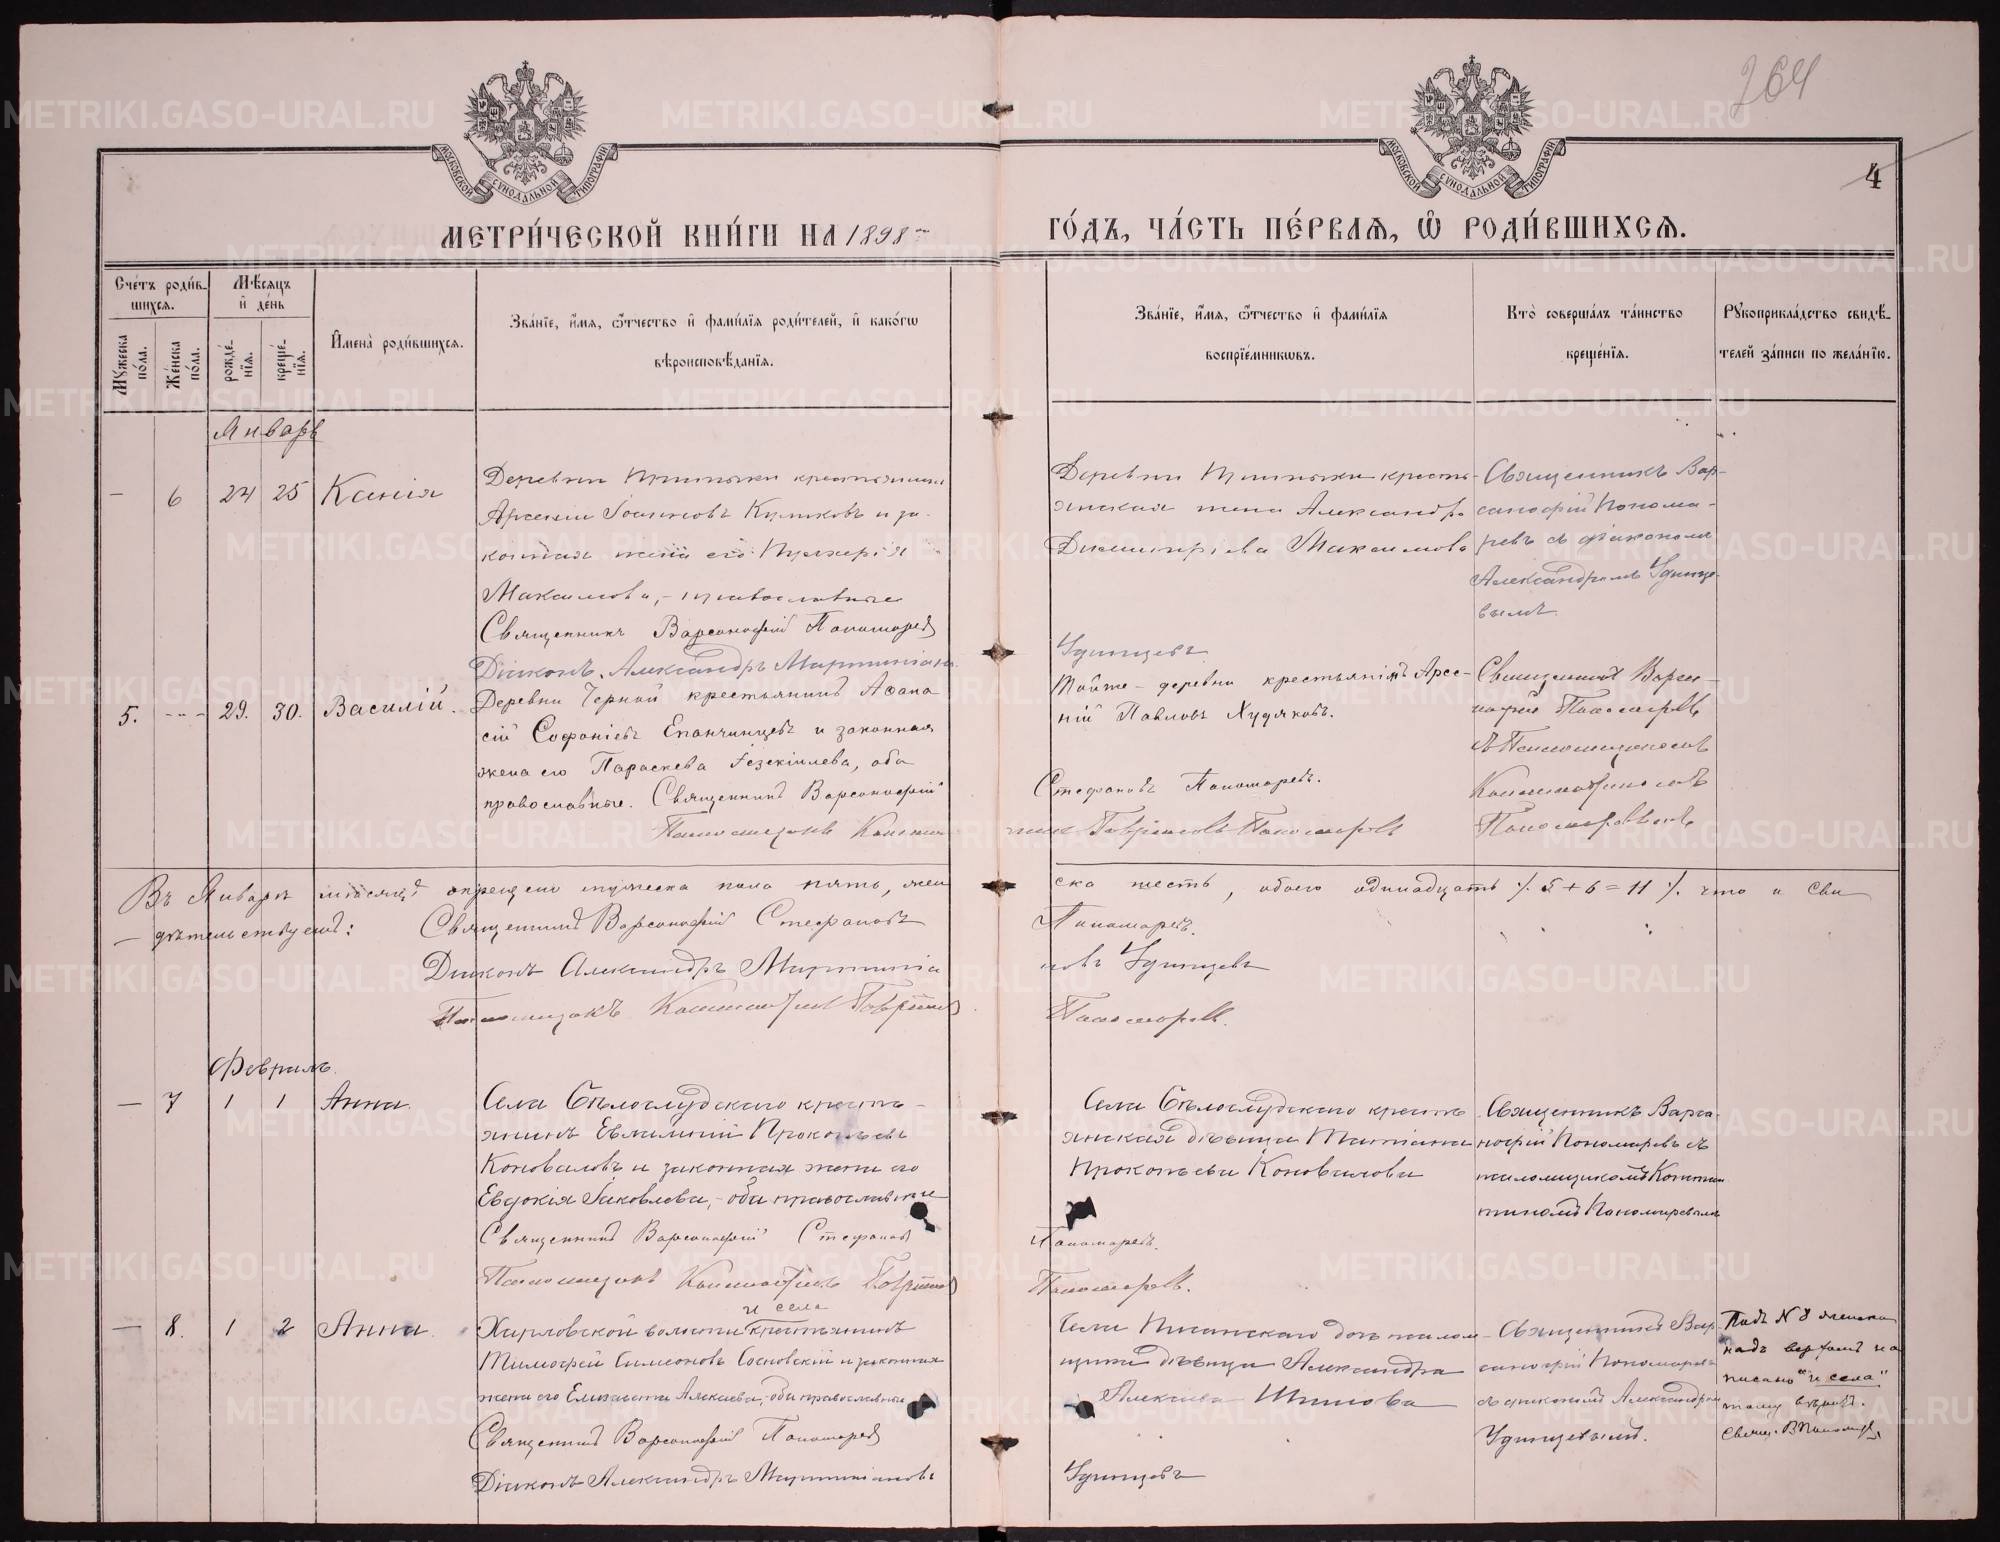 264
4
МОСКОВСКОЙ СѴНОДАЛЬНОЙ ТИПОГРАФІИ
МОСКОВСКОЙ СѴНОДАЛЬНОЙ ТИПОГРАФІИ
МЕТРИ́ЧЕСКОЙ КНИ́ГИ НА 1898
ГО́ДЪ, ЧА́СТЬ ПЕ́РВАѦ, Ѽ РОДИ́ВШИХСѦ.
Сче́тъ роди́в-
шихсѧ.
Мѣ́сѧцъ
и҆ де́нь
Мꙋ́жеска по́ла.
Же́нска по́ла.
рожде́-нїѧ.
креще́-нїѧ.
И҆мена̀ роди́вшихсѧ.
Зва́нїе, и҆́мѧ, ѻ҆́тчество и҆ фами́лїѧ роди́телей, и҆ како́гѡ
вѣроисповѣ́данїѧ.
Зва́нїе, и҆́мѧ, ѻ҆́тчество и҆ фами́лїѧ
воспрїе́мникѡвъ.
Кто̀ соверша́лъ та́инство
креще́нїѧ.
Рꙋкоприкла́дство свидѣ́-
телей за́писи по жела́нїю.
Январь
— 6 24 25 Ксенія
Деревни крестьянинъ
Арсеній Іоанновъ Куликовъ и за-
конная жена его Пульхерія
Максимова, – православные
Священникъ Варсонофій Пономарев
Діаконъ Александръ Мартиніан
Деревни кресть-
янская жена Александра
Димитріева Максимова
Удинцевъ
Священникъ Вар-
санофій Понома-
ревъ съ діакономъ
Александромъ Удинце-
вымъ.
5. — 29. 30. Василій.
Деревни Черной крестьянинъ Афана
сій Софоніевъ Епанчинцевъ и законная
жена его Параскева Іезекіилева, оба
православные. Священникъ Варсонофій
Псаломщикъ Констан
Тойже – деревни крестьянинъ Арсе-
ній Павловъ Худяковъ.
Стефановъ Пономаревъ.
тинъ Гавріиловъ Пономаревъ
Священникъ Варсо-
нофій Пономаревъ
съ Псаломщикомъ
Константиномъ
Пономаревымъ
Въ Январѣ мѣсяцѣ окрещено мужеска пола пять, жен
ска шесть, обоего одинадцать ٪ 5 + 6 = 11 ٪. что и сви
— дѣтельствуемъ: Священникъ Варсонофій Стефановъ
Пономаревъ.
Діаконъ Александръ Мартиніа
новъ Удинцевъ
Псаломщикъ Константинъ Гавріилов
Пономаревъ.
Февраль.
— 7 1 1 Анна.
Села Бѣлослудскаго кресть-
янинъ Евлампій Прокопьевъ
Коноваловъ и законная жена его
Евдокія Іаковлева, – оба православные
Священникъ Варсонофій Стефановъ
Псаломщикъ Константинъ Гавріилов
Села Бѣлослудскаго кресть
янская дѣвица Татіана
Прокопьева Коновалова
Пономаревъ.
Пономаревъ.
Священникъ Варса-
нофій Пономаревъ съ
псаломщикомъ Констан
тиномъ Пономаревымъ
— 8. 1 2 Анна.
и села
Харловской волости крестьянинъ
Тимофей Симеоновъ Сосновскій и законная
жена его Елизавета Алексіева, оба православные
Священникъ Варсонофій Пономарев
Діаконъ Александръ Мартиніановъ
Села Писанскаго дочь псалом-
щика дѣвица Александра
Алексіева Шишова
Удинцевъ
Священникъ Вар-
санофій Пономаревъ
съ діакономъ Александром
Удинцевымъ.
Подъ N 8 женска
надъ верхомъ на
писано "и села"
тому вѣрить.
Свящ. В Пономар